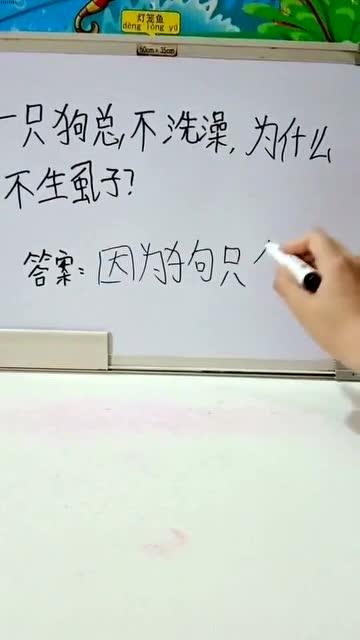 灯笼鱼
dēng lóng yú
50cm×35cm
一只狗总不洗澡,为什么
不生虱子?
答案:因为狗只